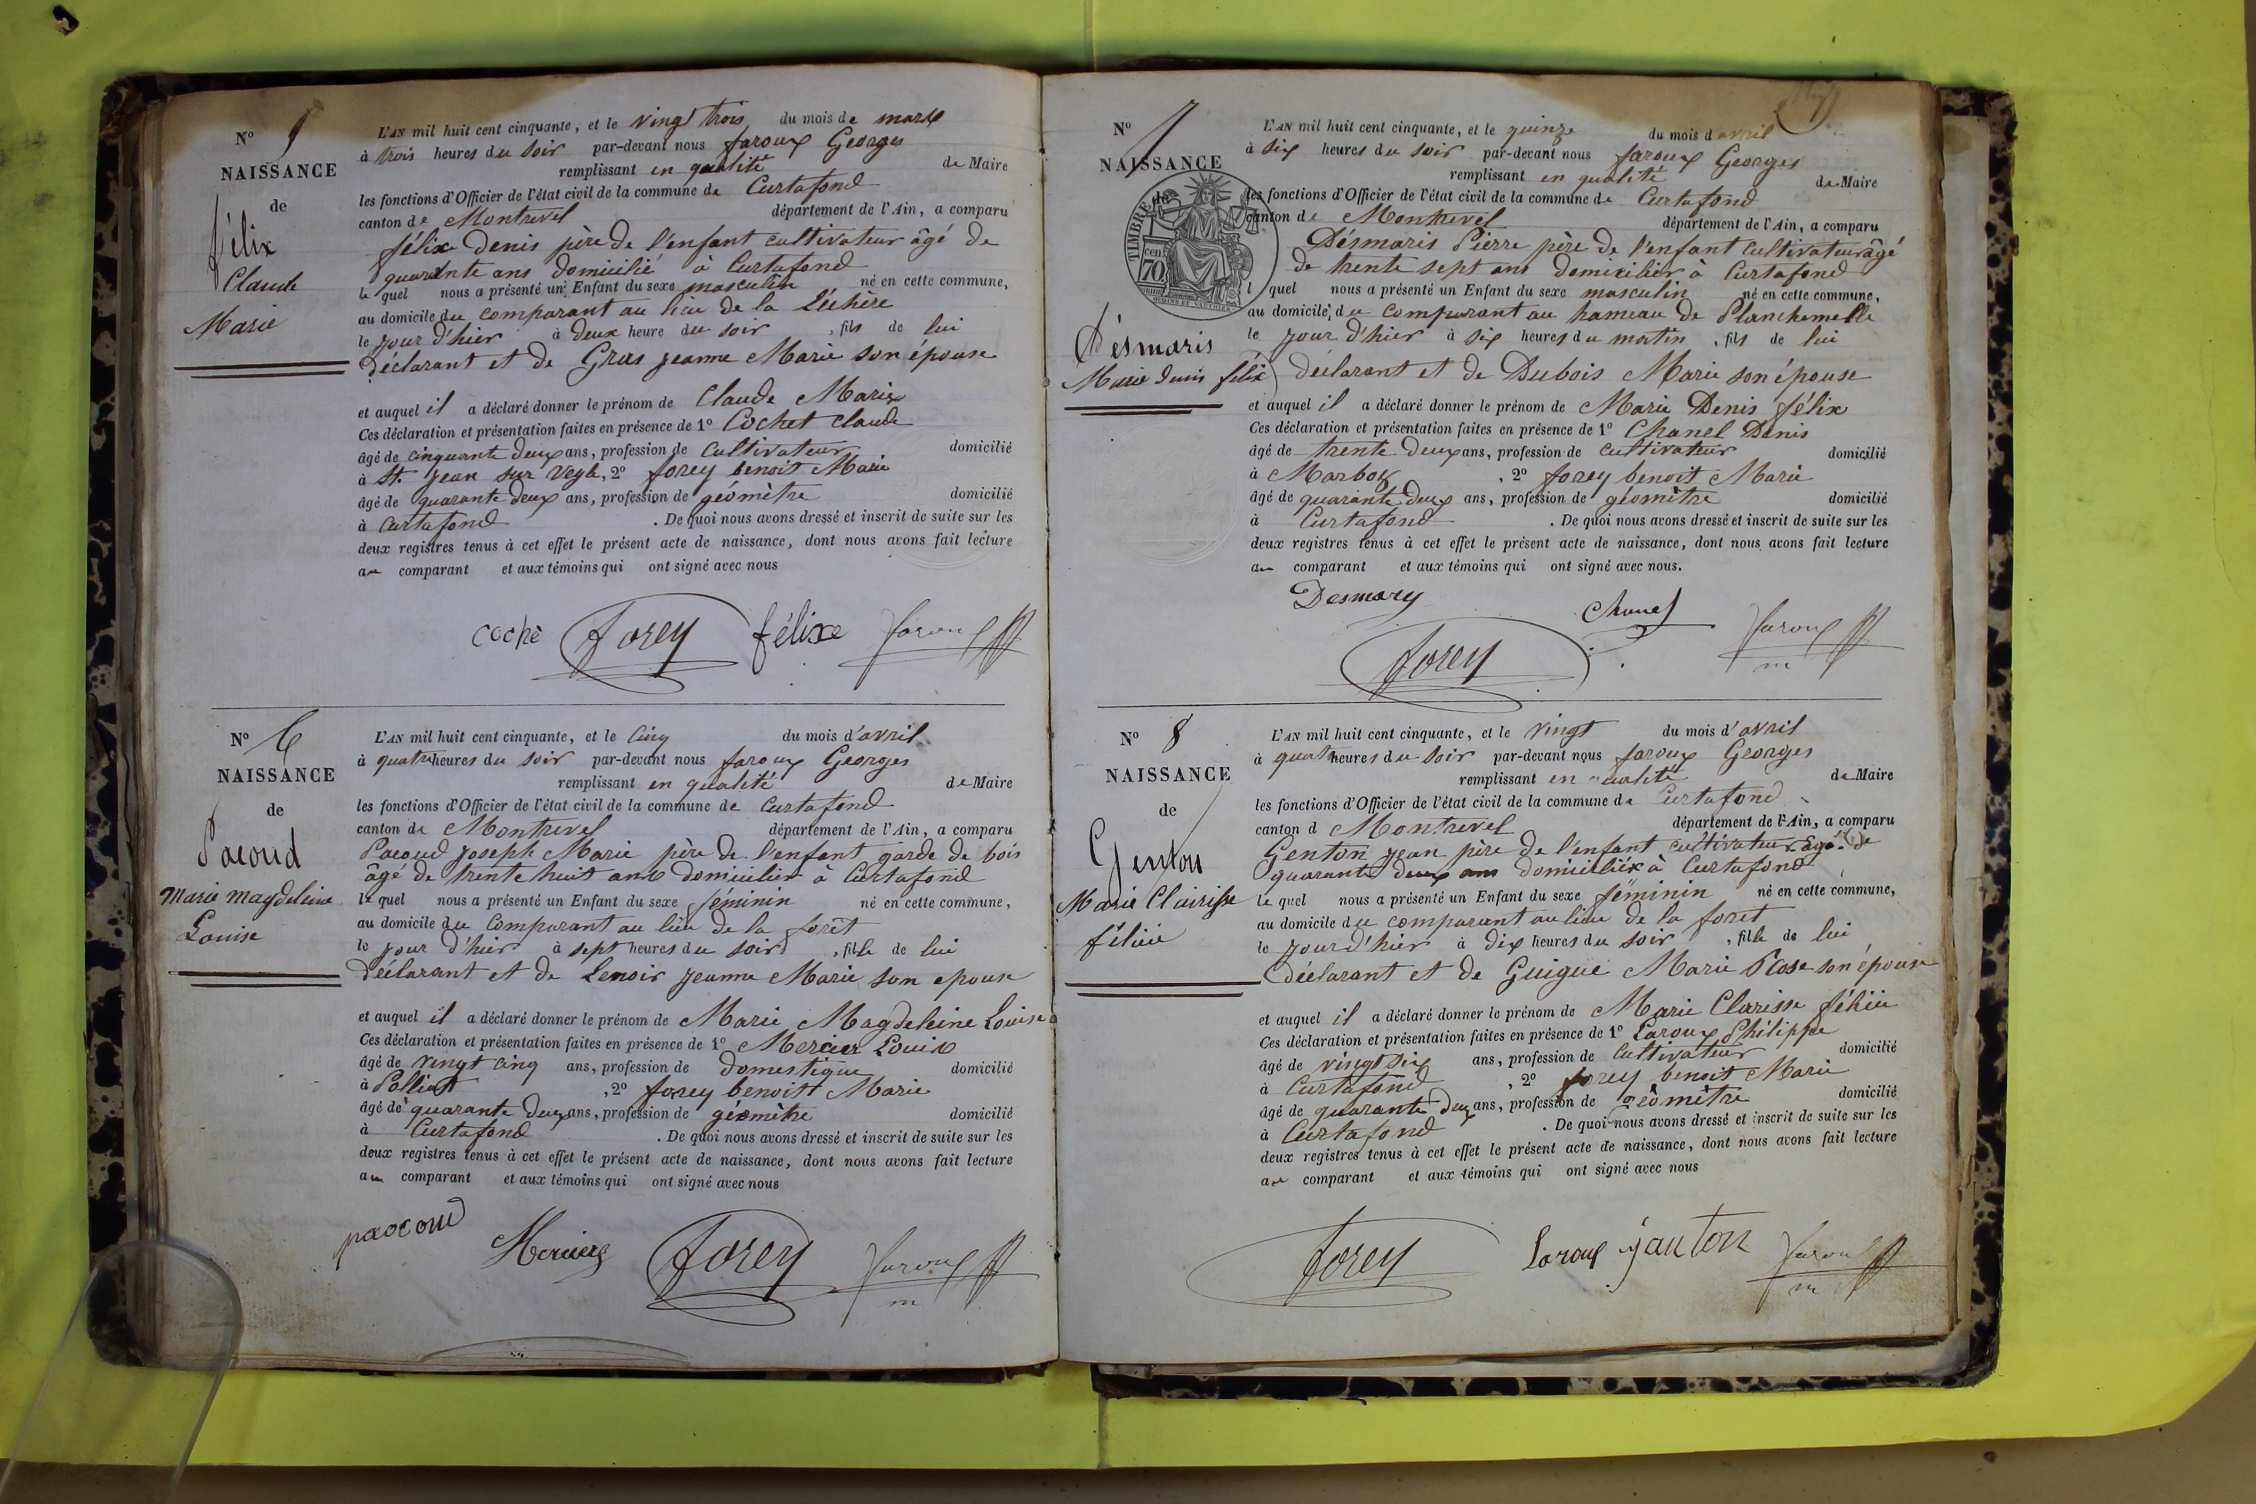 N° 5
NAISSANCE
de
félix
Claude
Marie
L'AN mil huit cent cinquante, et le vingt trois du mois de mars
à trois heures du soir par-devant nous faroux Georges
remplissant en qualité de Maire
les fonctions d'Officier de l'état civil de la commune de Curtafond
canton de Montrevel département de l'Ain, a comparu
félix Denis père de l'enfant cultivateur âgé de
quarante ans domicilié à Curtafond
le quel nous a présenté un Enfant du sexe masculin né en cette commune,
au domicile du comparant au lieu de la Léchère
le jour d'hier à deux heure du soir , fils de lui
déclarant et de Gras jeanne Marie son épouse
et auquel il a déclaré donner le prénom de Claude Marie
Ces déclaration et présentation faites en présence de 1° Cochet Claude
âgé de cinquante deux ans, profession de cultivateur domicilié
à St. jean sur veyle, 2° forey benoit Marie
âgé de quarante deux ans, profession de géomètre domicilié
à Curtafond . De quoi nous avons dressé et inscrit de suite sur les
deux registres tenus à cet effet le présent acte de naissance, dont nous avons fait lecture
au comparant et aux témoins qui ont signé avec nous
cochè forey félixe faroux
N° 6
NAISSANCE
de
Pacoud
Marie Magdeleine
Louise
L'AN mil huit cent cinquante, et le cinq du mois d'avril
à quatre heures du soir par-devant nous faroux Georges
remplissant en qualité de Maire
les fonctions d'Officier de l'état civil de la commune de Curtafond
canton de Montrevel département de l'Ain, a comparu
Pacoud joseph Marie père de l'enfant garde de bois
âgé de trente huit ans domicilier à Curtafond
le quel nous a présenté un Enfant du sexe féminin né en cette commune,
au domicile du comparant au lieu de la forêt
le jour d'hier à sept heures du soir , fille de lui
déclarant et de Lenoir jeanne Marie son epouse
et auquel il a déclaré donner le prénom de Marie Magdeleine Louise
Ces déclaration et présentation faites en présence de 1° Mercier Louis
âgé de vingt cinq ans, profession de domestique domicilié
à Polliat , 2° forey benoit Marie
âgé de quarante deux ans, profession de géomètre domicilié
à Curtafond . De quoi nous avons dressé et inscrit de suite sur les
deux registres tenus à cet effet le présent acte de naissance, dont nous avons fait lecture
au comparant et aux témoins qui ont signé avec nous
pacoud Mercier forey faroux
m
N° 7
NAISSANCE
de
TIMBRE
70 cen
Désmaris
Marie denis félix
L'AN mil huit cent cinquante, et le quinze du mois d'avril
à six heures du soir par-devant nous faroux Georges
remplissant en qualité de Maire
les fonctions d'Officier de l'état civil de la commune de Curtafond
canton de Montrevel département de l'Ain, a comparu
Désmaris Pierre père de l'enfant cultivateur âgé
de trente sept ans domicilier à Curtafond
le quel nous a présenté un Enfant du sexe masculin né en cette commune,
au domicile du comparant au hameau de Planchemelle
le jour d'hier à six heures du matin , fils de lui
déclarant et de Dubois Marie son épouse
et auquel il a déclaré donner le prénom de Marie Denis félix
Ces déclaration et présentation faites en présence de 1° Chanel Denis
âgé de trente deux ans, profession de cultivateur domicilié
à Marboz , 2° forey benoit Marie
âgé de quarante deux ans, profession de géomètre domicilié
à Curtafond . De quoi nous avons dressé et inscrit de suite sur les
deux registres tenus à cet effet le présent acte de naissance, dont nous avons fait lecture
au comparant et aux témoins qui ont signé avec nous.
Desmary chanel faroux
forey m
N° 8
NAISSANCE
de
Genton
Marie Clairisse
félicie
L'AN mil huit cent cinquante, et le vingt du mois d'avril
à quatre heures du soir par-devant nous faroux Georges
remplissant en qualité de Maire
les fonctions d'Officier de l'état civil de la commune de Curtafond
canton d Montrevel département de l'Ain, a comparu
Genton jean père de l'enfant cultivateur âgé de
quarante deux ans domicilié à Curtafond
le quel nous a présenté un Enfant du sexe féminin né en cette commune,
au domicile du comparant au lieu de la foret
le jour d'hier à dix heures du soir , fille de lui
déclarant et de Guigue Marie Rose son épouse
et auquel il a déclaré donner le prénom de Marie Clarisse félicie
Ces déclaration et présentation faites en présence de 1° Laroux Philippe
âgé de vingt six ans, profession de cultivateur domicilié
à Curtafond , 2° forey benoit Marie
âgé de quarante deux ans, profession de géomètre domicilié
à Curtafond . De quoi nous avons dressé et inscrit de suite sur les
deux registres tenus à cet effet le présent acte de naissance, dont nous avons fait lecture
au comparant et aux témoins qui ont signé avec nous
forey Laroux janton faroux
m